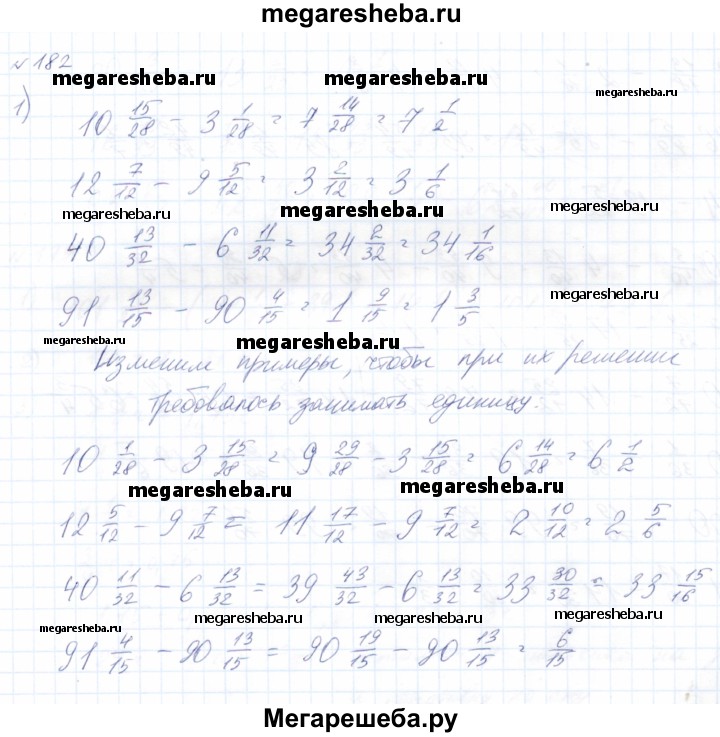 megaresheba.ru
№182
megaresheba.ru megaresheba.ru megaresheba.ru
1) 10 15/28 - 3 1/28 = 7 14/28 = 7 1/2
12 7/12 - 9 5/12 = 3 2/12 = 3 1/6
megaresheba.ru megaresheba.ru megaresheba.ru
40 13/32 - 6 11/32 = 34 2/32 = 34 1/16
megaresheba.ru
91 13/15 - 90 4/15 = 1 9/15 = 1 3/5
megaresheba.ru megaresheba.ru megaresheba.ru
Изменим примеры, чтобы при их решении
требовалось занимать единицу:
10 1/28 - 3 15/28 = 9 29/28 - 3 15/28 = 6 14/28 = 6 1/2
megaresheba.ru megaresheba.ru
12 5/12 - 9 7/12 = 11 17/12 - 9 7/12 = 2 10/12 = 2 5/6
40 11/32 - 6 13/32 = 39 43/32 - 6 13/32 = 33 30/32 = 33 15/16
megaresheba.ru megaresheba.ru megaresheba.ru
91 4/15 - 90 13/15 = 90 19/15 - 90 13/15 = 6/15
Мегарешеба.ру